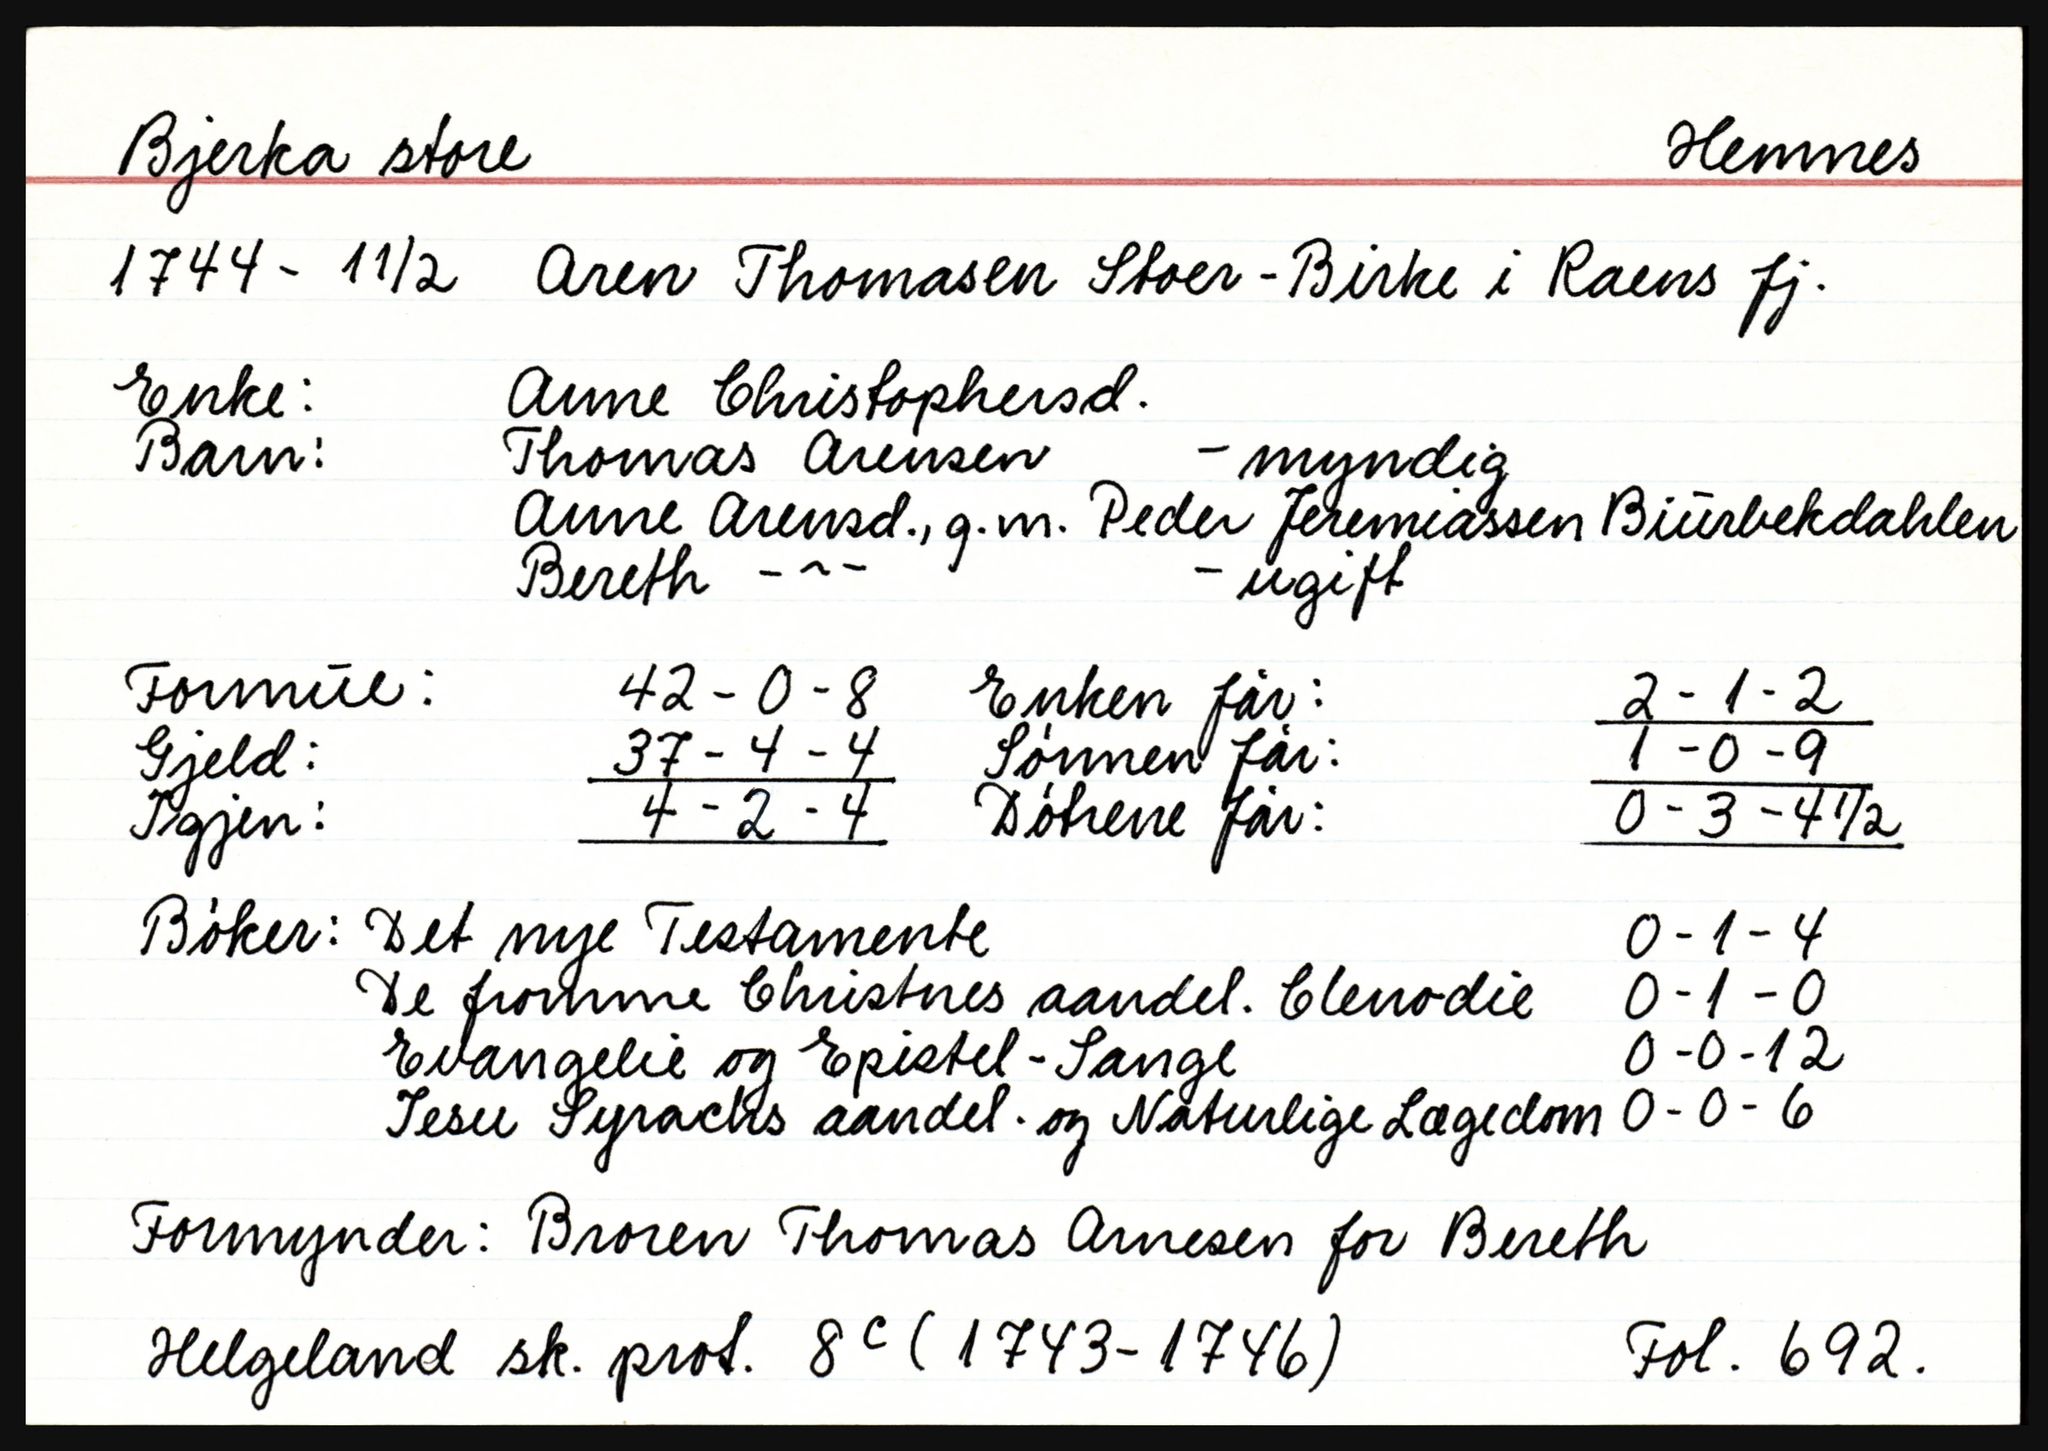 Bjerka store Hemnes
1744 - 11/2 Aren Thomasen Stoer-Birke i Raens fj.
Enke: Anne Christophersd.
Barn: Thomas Arensen - myndig
Anne Arensd., g.m. Peder Jeremiassen Biūrbekdahlen
Bereth -~- - ugift
Formūe: 42 - 0 - 8 Enken får: 2 - 1 - 2
Gjeld: 37 - 4 - 4 Sønnen får: 1 - 0 - 9
Igjen: 4 - 2 - 4 Døtrene får: 0 - 3 - 4 1/2
Bøker: Det nye Testamente 0 - 1 - 4
De fromme Christnes aandel. Clenodie 0 - 1 - 0
Evangelie og Epistel-Sange 0 - 0 - 12
Jesu Syrachs aandel. og Naturlige Lægedom 0 - 0 - 6
Formynder: Broren Thomas Arnesen for Bereth
Helgeland sk. prot. 8c (1743-1746) Fol. 692.